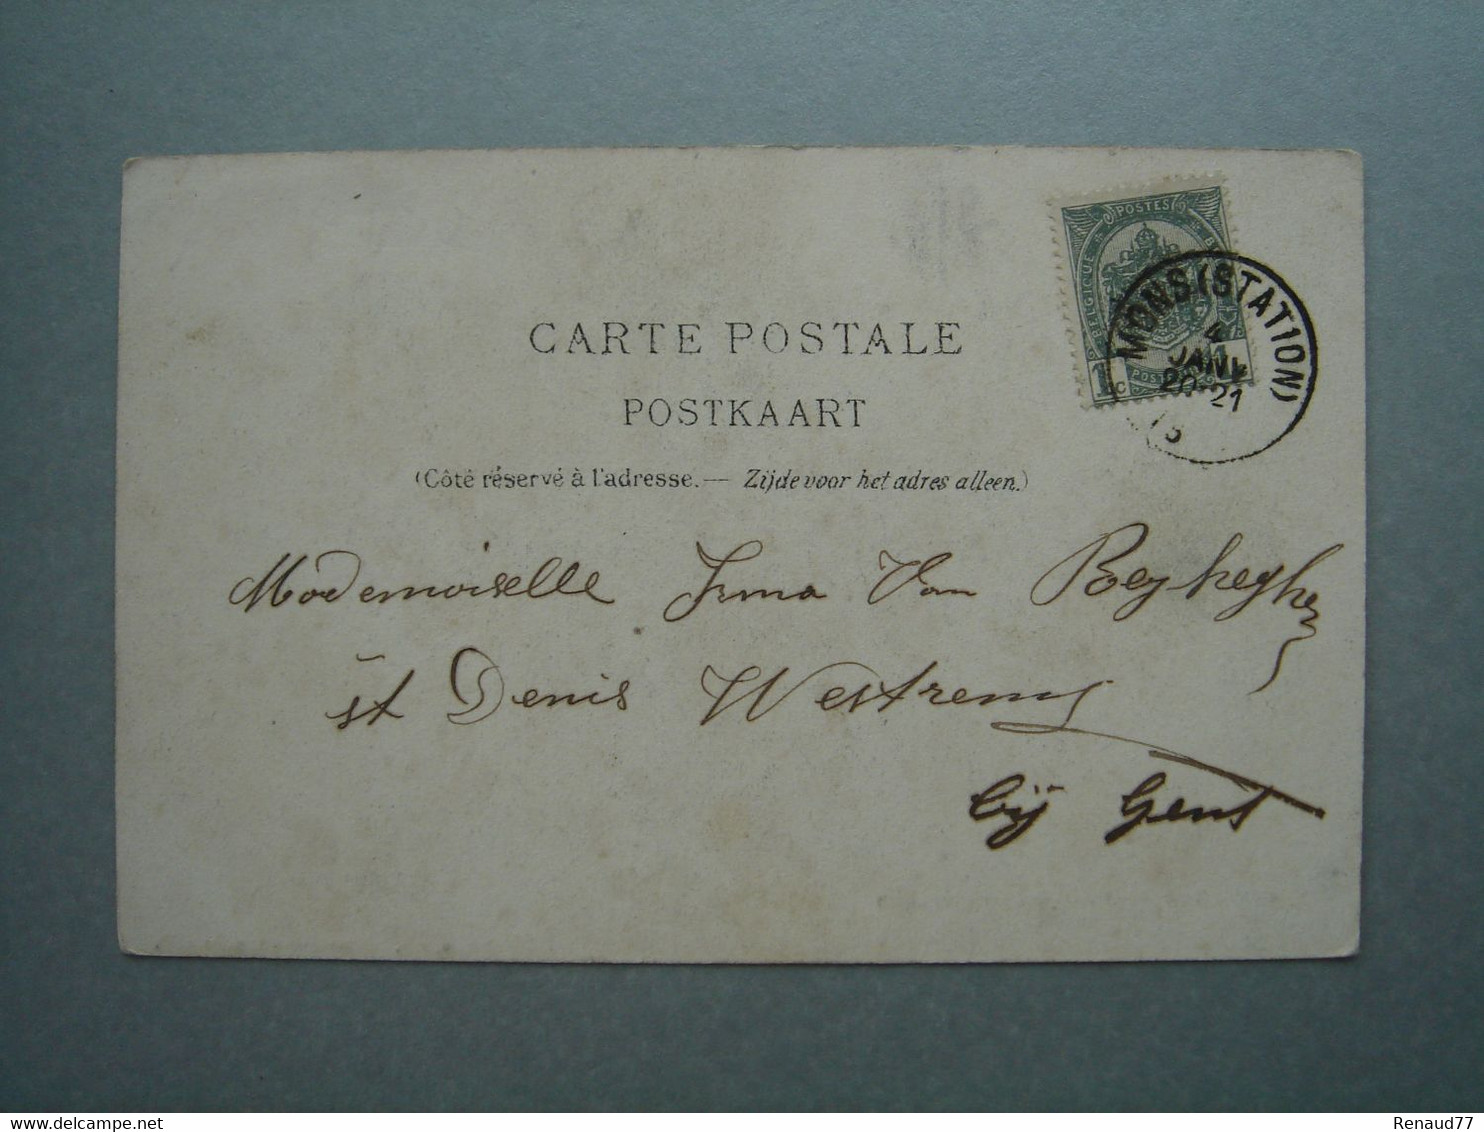 POSTES
BELGIQUE
1 c
MONS (STATION)
4
JANV
20-21
CARTE POSTALE
POSTKAART
(Côté réservé à l'adresse.— Zijde voor het adres alleen.)
Mademoiselle Irma Van Beyleghe
st Denis Westrem
bij Gent
delcampe.net
Renaud77